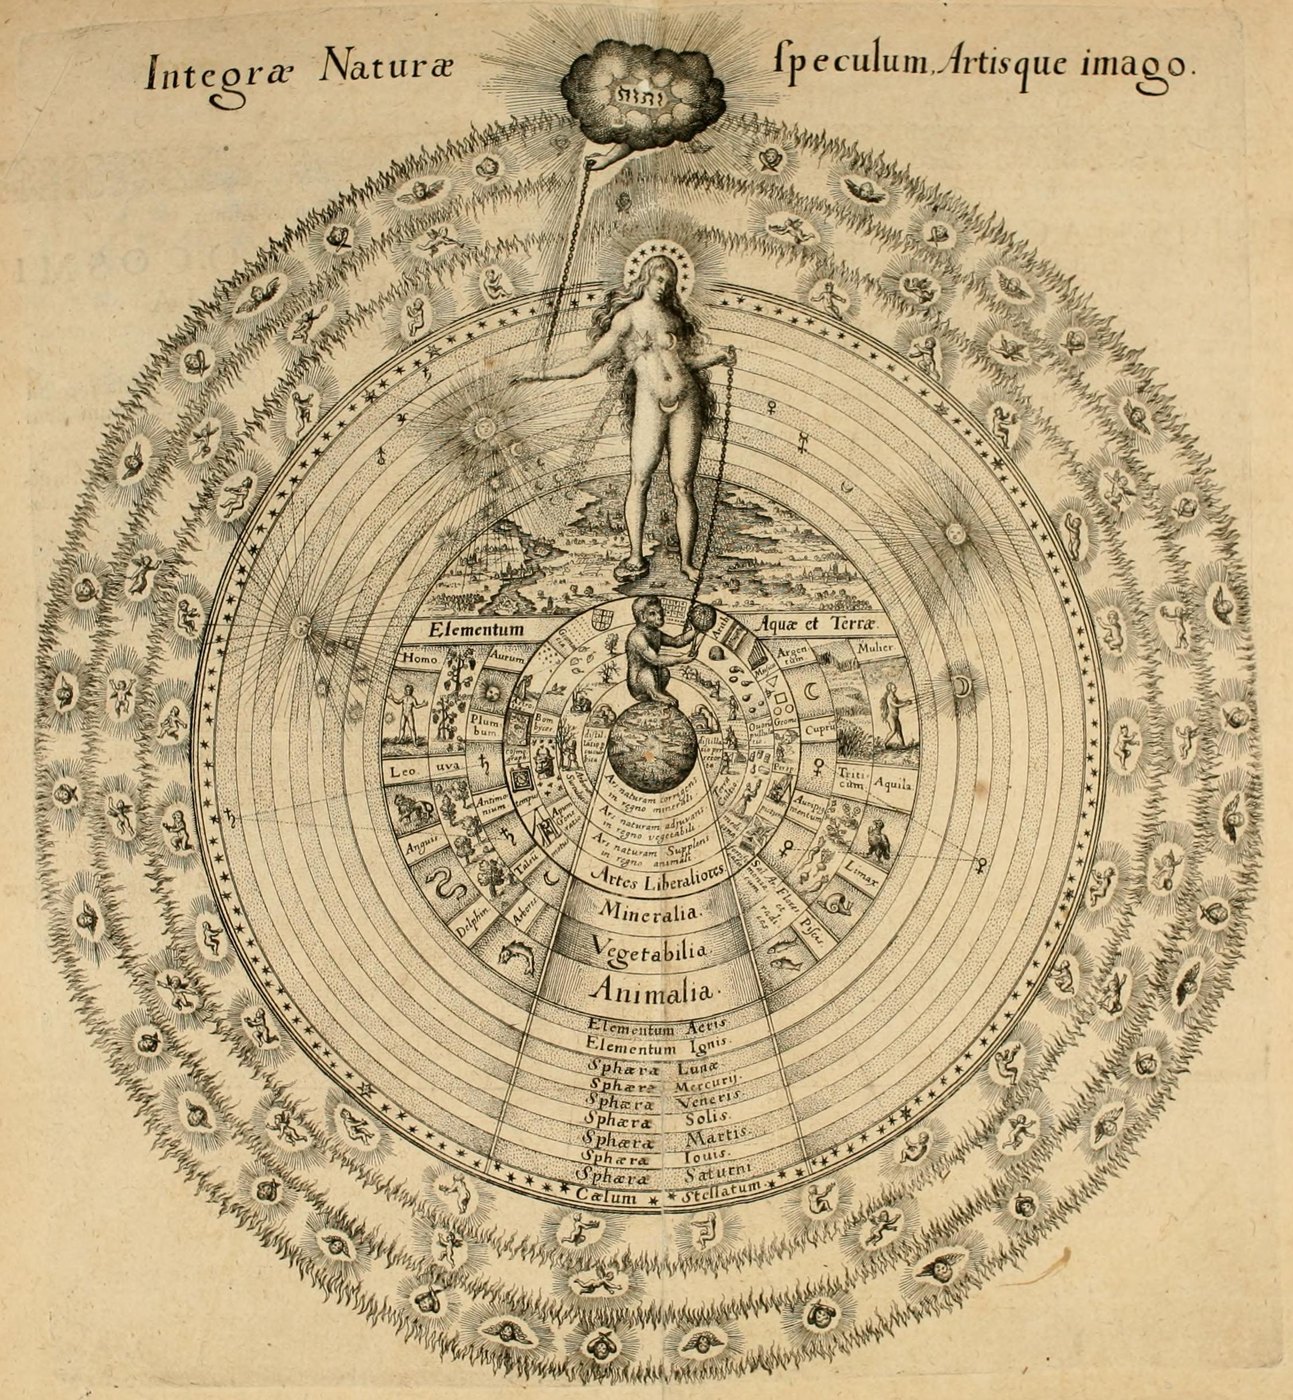 Integræ Naturæ ſpeculum, Artisque imago.
יהוה
Elementum Aquæ et Terræ.
Homo
Aurum
Argen
tum
Mulier
Plum
bum
Cupru
Leo.
uva
Triti
cum
Aquila
Antimo
nium
Auripi
gmentum
Anguis
Talcu
Limax
Delphin
Arbores
Flores
Piſcis
Ars naturam corrigens
in regno minerali
Ars naturam adjuvans
in regno vegetabili
Ars naturam Supplens
in regno animali
Artes Liberaliores
Mineralia.
Vegetabilia
Animalia.
Elementum Aeris
Elementum Ignis.
Sphæra Lunæ
Sphæra Mercurij.
Sphæra Veneris.
Sphæra Solis.
Sphæra Martis.
Sphæra Iouis.
Sphæra Saturni
Cælum Stellatum.